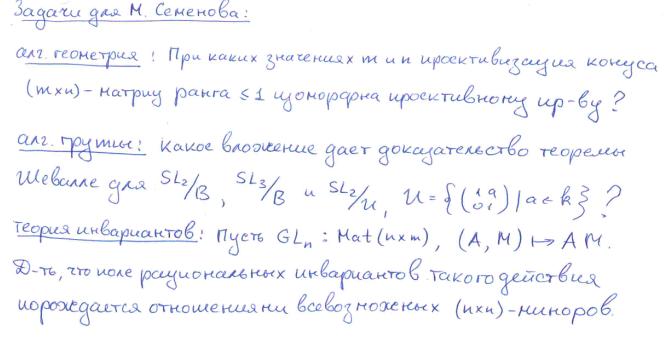 Задачи для М. Семенова:
алг. геометрия: При каких значениях m и n проективизация конуса
(m×n)-матриц ранга ≤1 изоморфна проективному пр-ву?
алг. группы: Какое вложение дает доказательство теоремы
Шевалле для SL₂/B, SL₃/B и SL₂/U, U={(1 a 0 1) | a ∈ k}?
теория инвариантов: Пусть GLₙ : Mat(n×m), (A, M) ↦ AM.
Д-ть, что поле рациональных инвариантов такого действия
порождается отношениями всевозможных (n×n)-миноров.